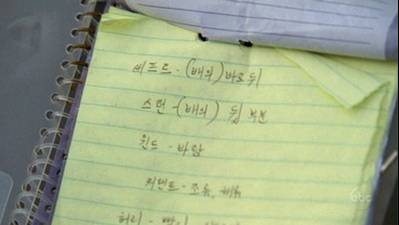 에프트 - (배의) 바로 뒤
스턴 - (배의) 뒷 부분
윈드 - 바람
커렌트 - 조류, 해류
허리 - 빨리
abc